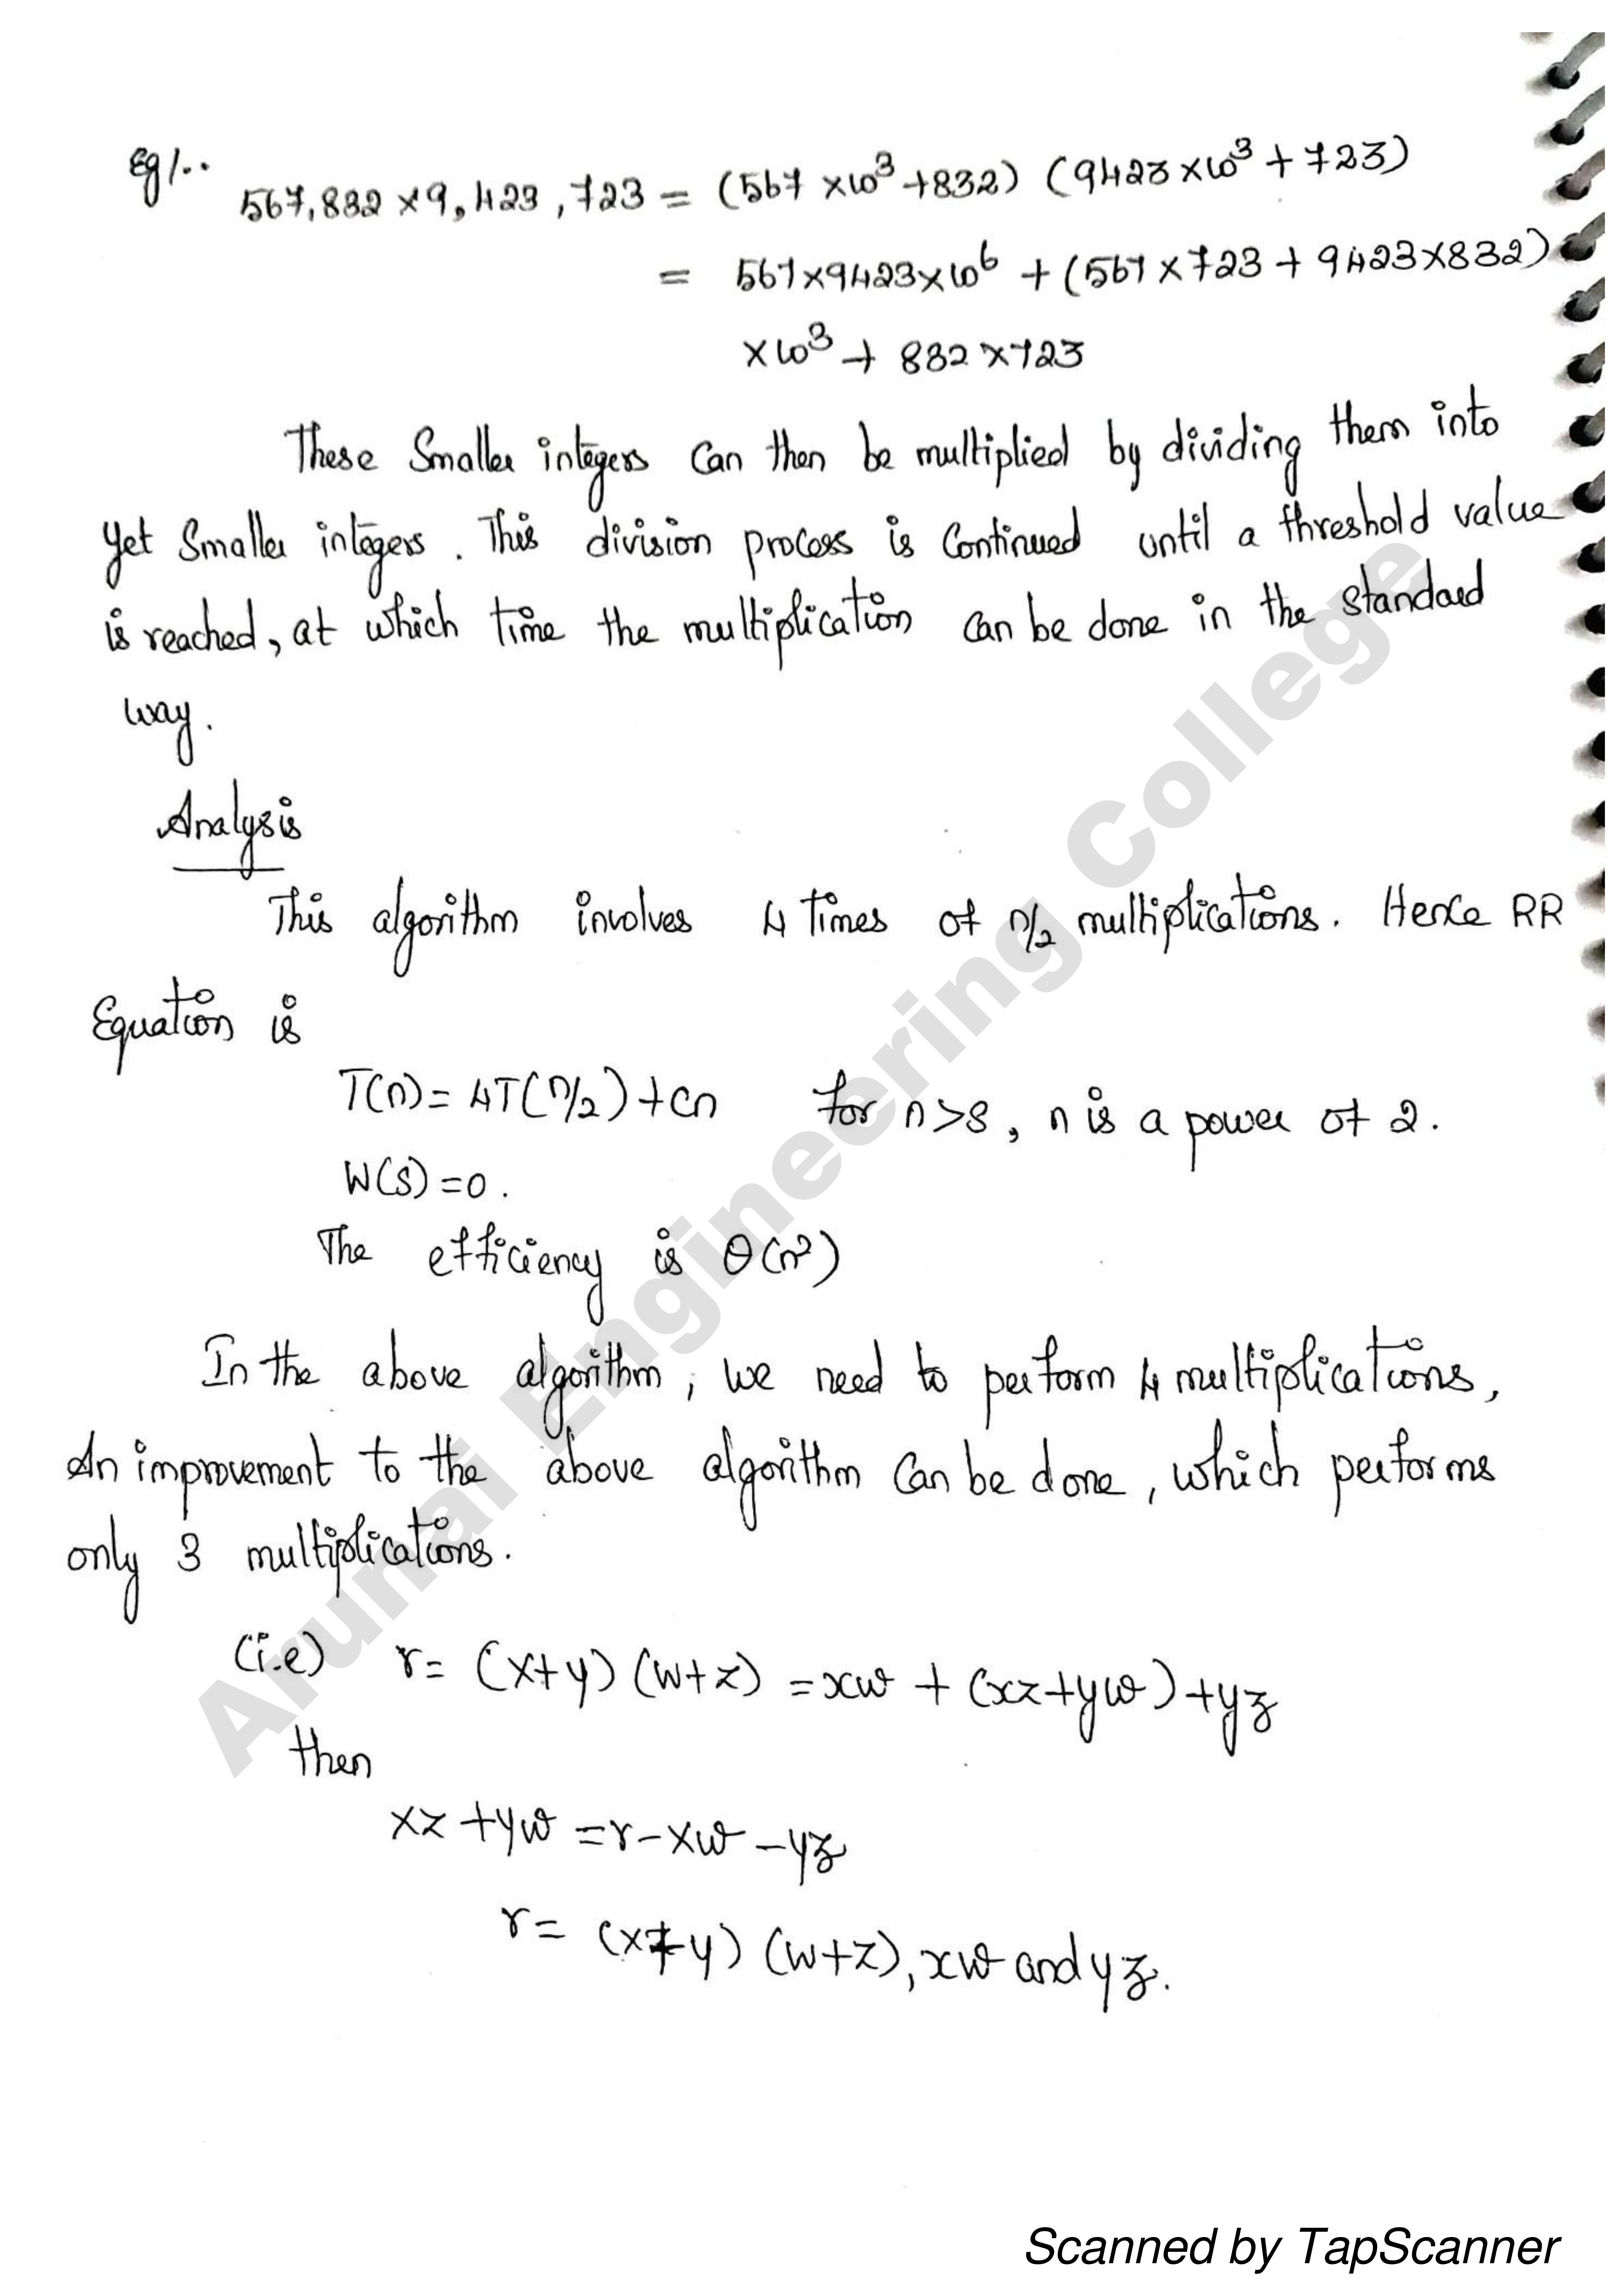 Eg 1..
567,832 × 9,423,723 = (567 × 10³ + 832) (9423 × 10³ + 723)
= 567 × 9423 × 10⁶ + (567 × 723 + 9423 × 832)
× 10³ + 832 × 723
These Smaller integers Can then be multiplied by dividing them into
yet Smaller integers. This division process is Continued until a threshold value
is reached, at which time the multiplication can be done in the standard
way.
Analysis
This algorithm involves 4 times of n/2 multiplications. Hence RR
Equation is
T(n) = 4T(n/2) + cn for n>s, n is a power of 2.
W(s) = 0.
The efficiency is θ(n²)
In the above algorithm, we need to perform 4 multiplications,
An improvement to the above algorithm Can be done, which performs
only 3 multiplications.
(i.e) r = (x+y) (w+z) = xw + (xz+yw) + yz
then
xz + yw = r - xw - yz
r = (x+y) (w+z), xw and yz.
Arunai Engineering College
Scanned by TapScanner